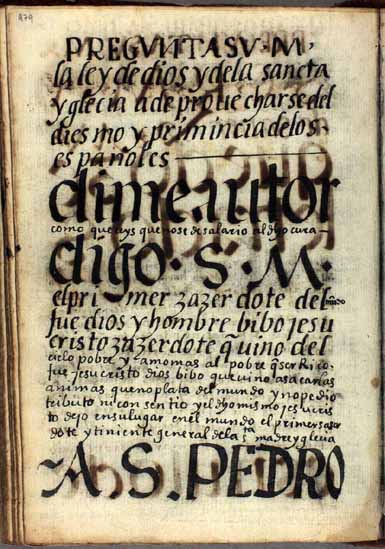 PREGVNTA SV · M ·
la ley de dios y de la sancta
yglecia a de prouecharse del
diesmo y primincia de los
españoles
dime autor
como quereys que no se de salario al dho cura
digo · S · M ·
el primer zazerdote del mũdo
fue dios y hombre bibo jesu
cristo zazerdote q̃ uino del
cielo pobre y amo mas al pobre q̃ ser Rico
fue jesucristo dios bibo que uino a sacar las
animas que no plata del mundo y no pedio
tributo ni consentio y el dho mismo jesucris
to dejo en su lugar en el mundo el primer saser
dote y tiniente general de la s^ta madre yglecia
A S. PEDRO